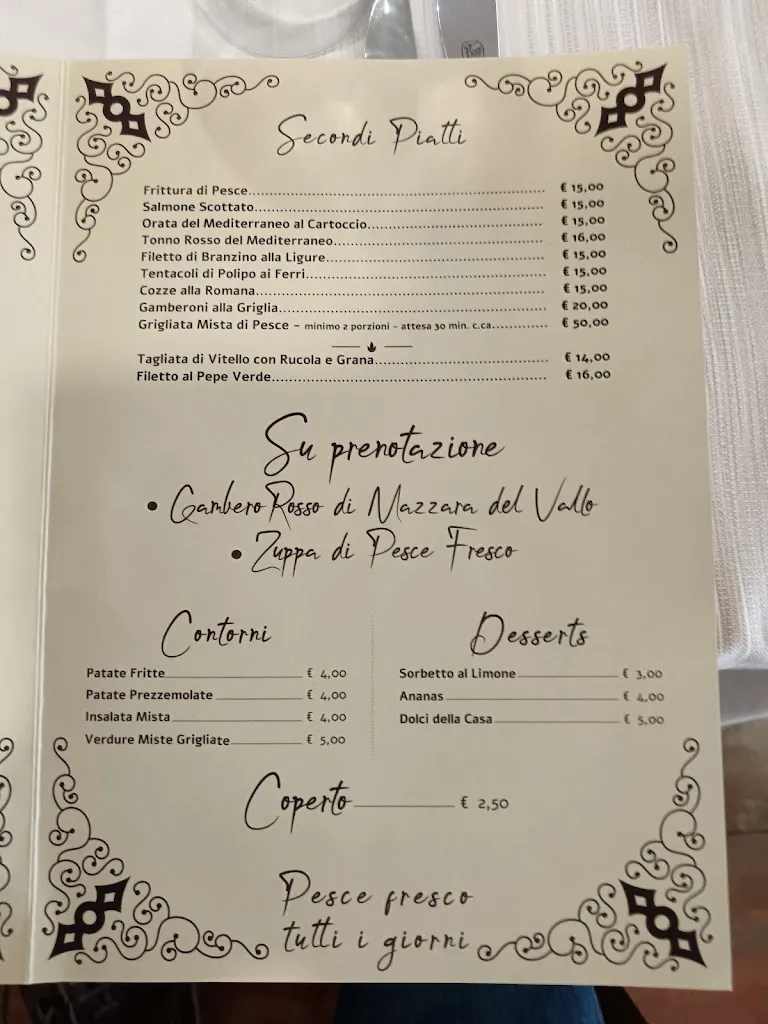 Secondi Piatti
Frittura di Pesce € 15,00
Salmone Scottato € 15,00
Orata del Mediterraneo al Cartoccio € 15,00
Tonno Rosso del Mediterraneo € 16,00
Filetto di Branzino alla Ligure € 15,00
Tentacoli di Polipo ai Ferri € 15,00
Cozze alla Romana € 15,00
Gamberoni alla Griglia € 20,00
Grigliata Mista di Pesce - minimo 2 porzioni - attesa 30 min. c.ca € 50,00
Tagliata di Vitello con Rucola e Grana € 14,00
Filetto al Pepe Verde € 16,00
Su prenotazione
• Gambero Rosso di Mazzara del Vallo
• Zuppa di Pesce Fresco
Contorni
Patate Fritte € 4,00
Patate Prezzemolate € 4,00
Insalata Mista € 4,00
Verdure Miste Grigliate € 5,00
Desserts
Sorbetto al Limone € 3,00
Ananas € 4,00
Dolci della Casa € 5,00
Coperto € 2,50
Pesce fresco
tutti i giorni